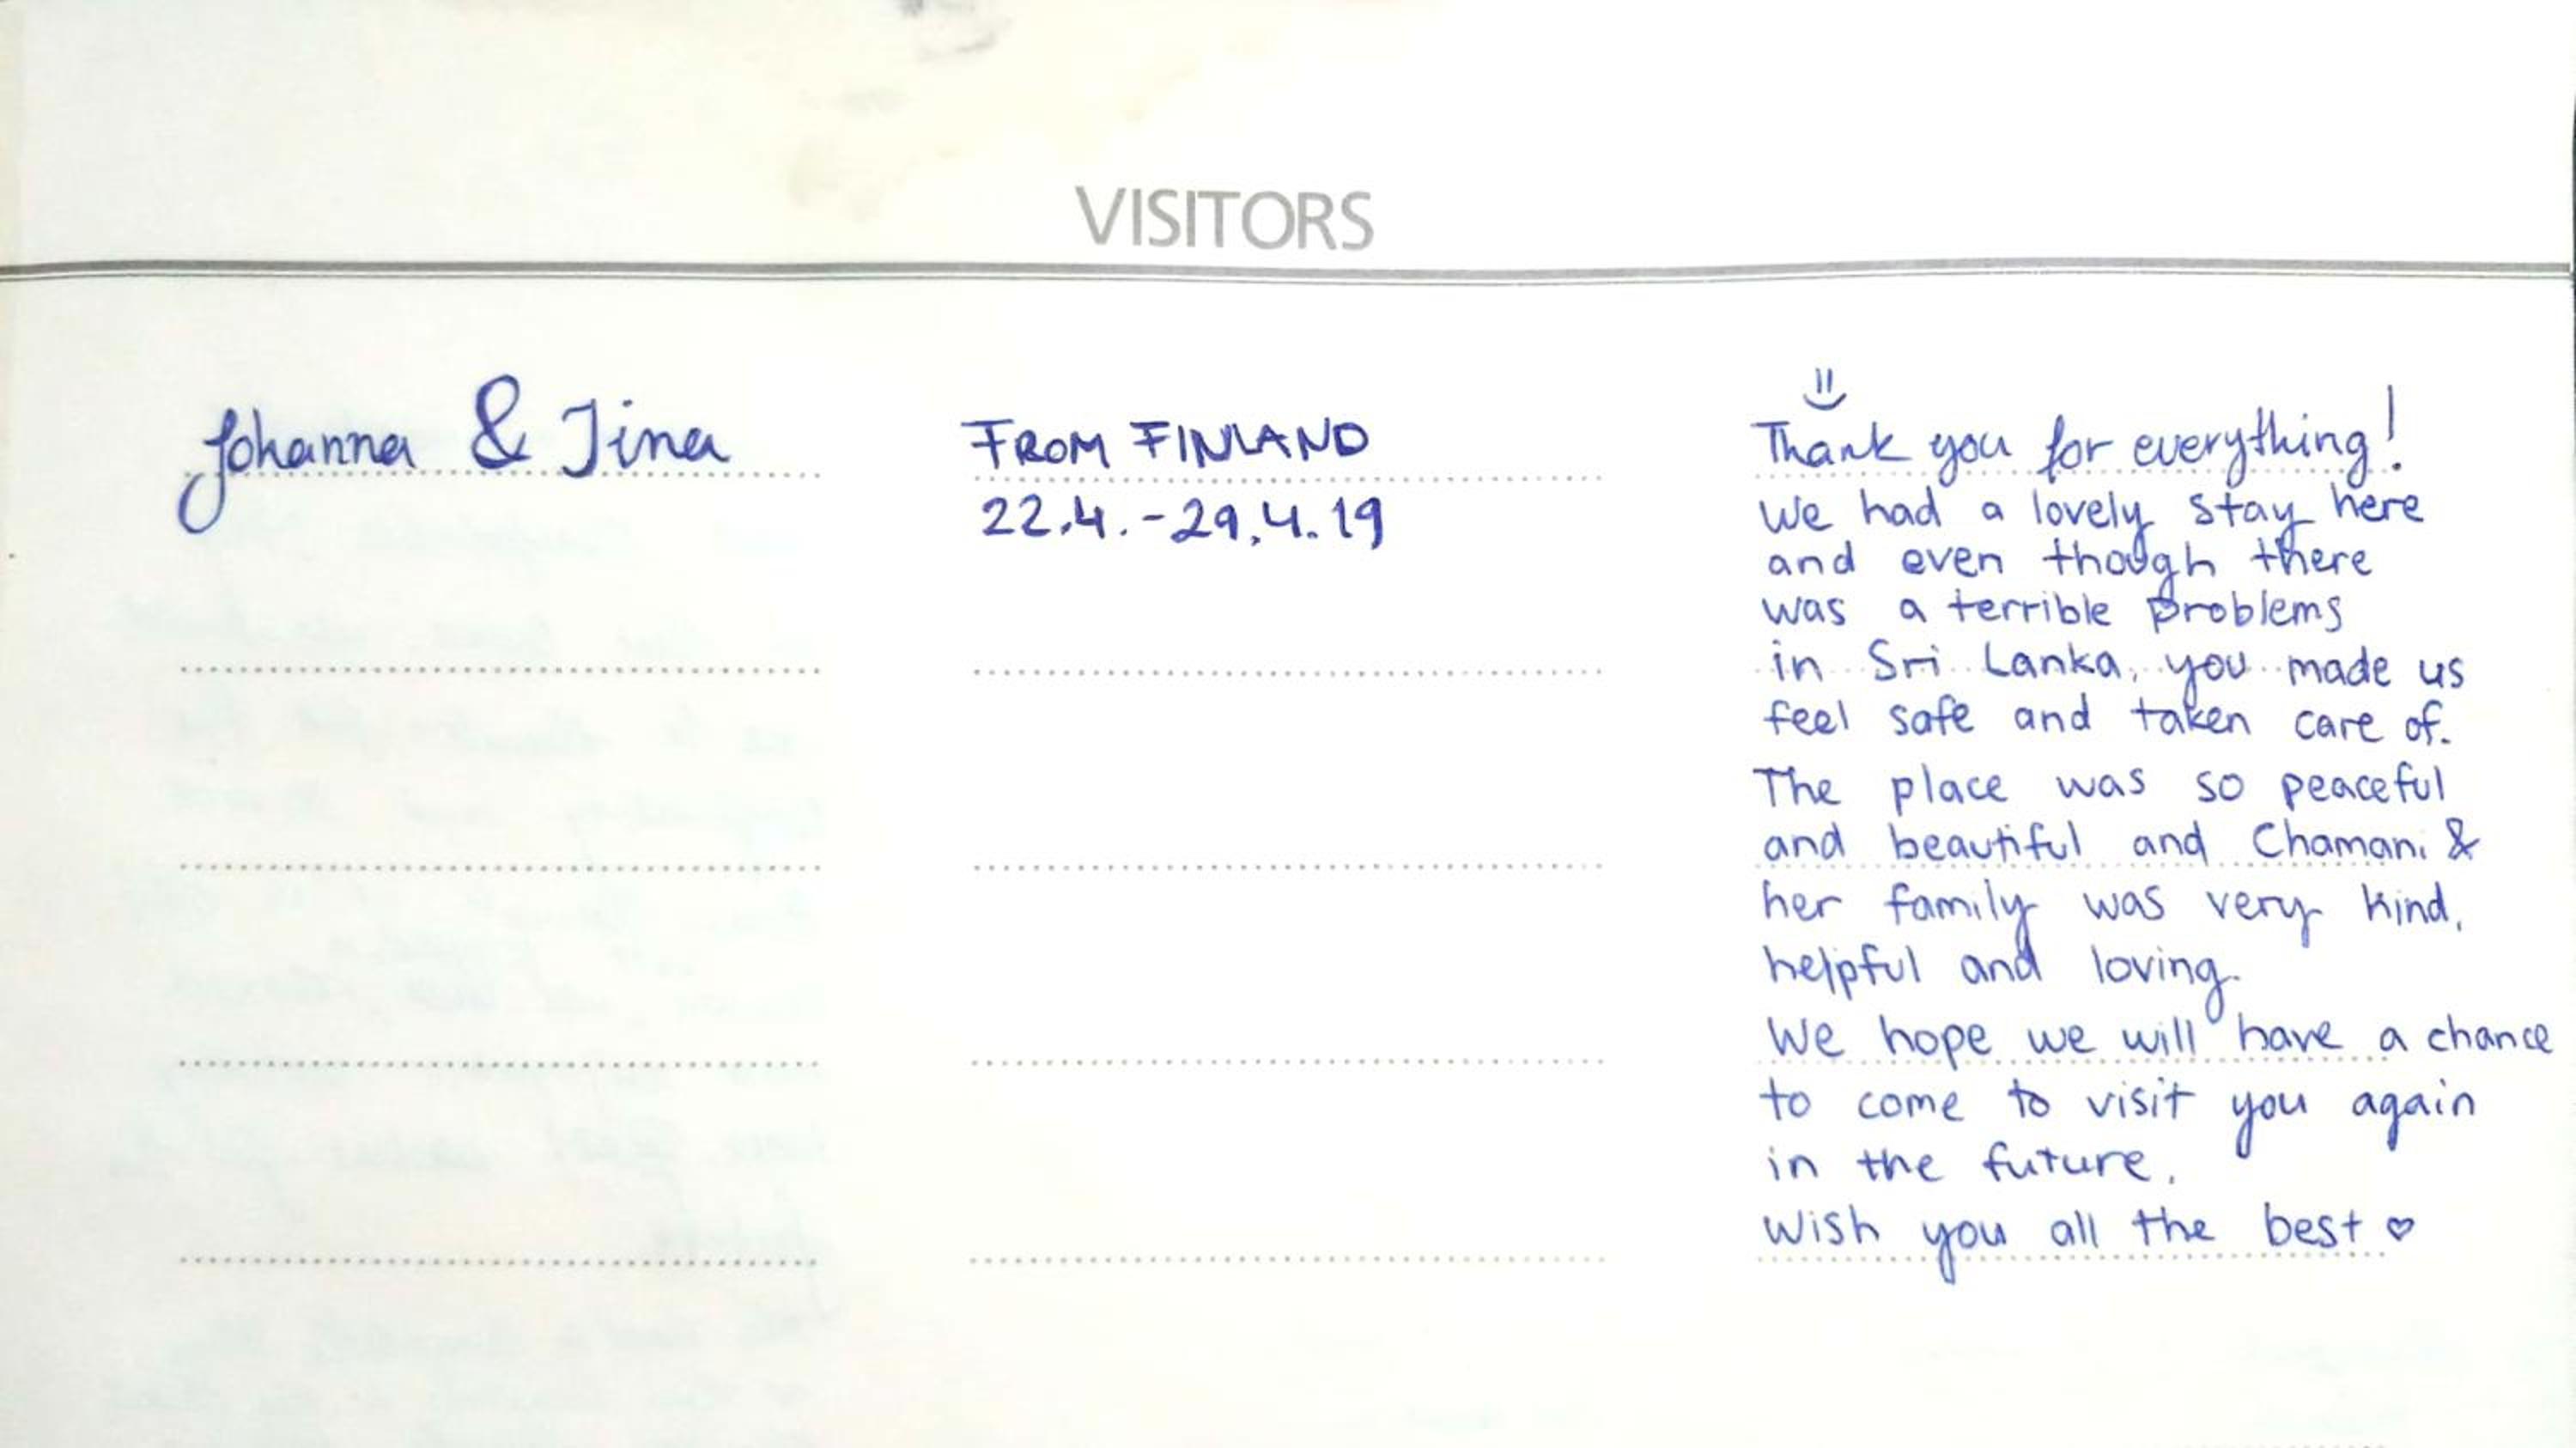 VISITORS
Johanna & Tina
FROM FINLAND
22.4.-29.4.19
Thank you for everything!
We had a lovely stay here
and even though there
was a terrible problems
in Sri Lanka, you made us
feel safe and taken care of.
The place was so peaceful
and beautiful and Chamani &
her family was very kind,
helpful and loving.
We hope we will have a chance
to come to visit you again
in the future.
Wish you all the best ♡